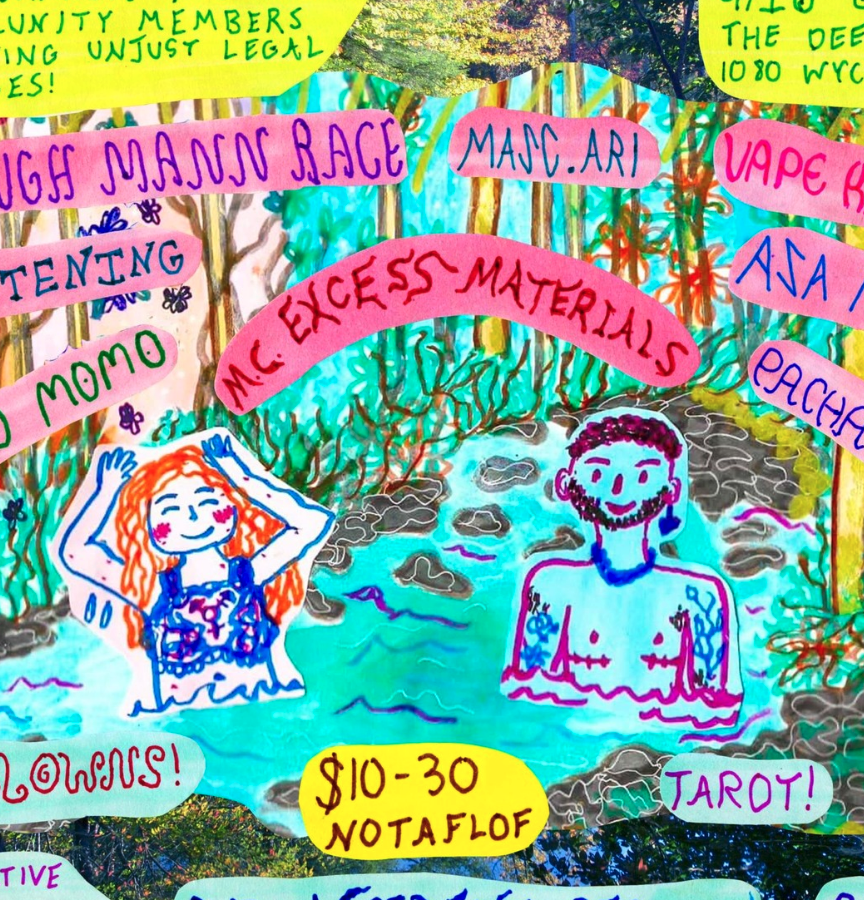 UNITY MEMBERS
ING UNJUST LEGAL
ES!
THE DEE
1080 WYC
UGH MANN RACE
MASC.ARI
VAPE
TENING
M.C. EXCESS MATERIALS
ASA
MOMO
PACHA
LOWNS!
$10-30
NOTAFLOF
TAROT!
TIVE